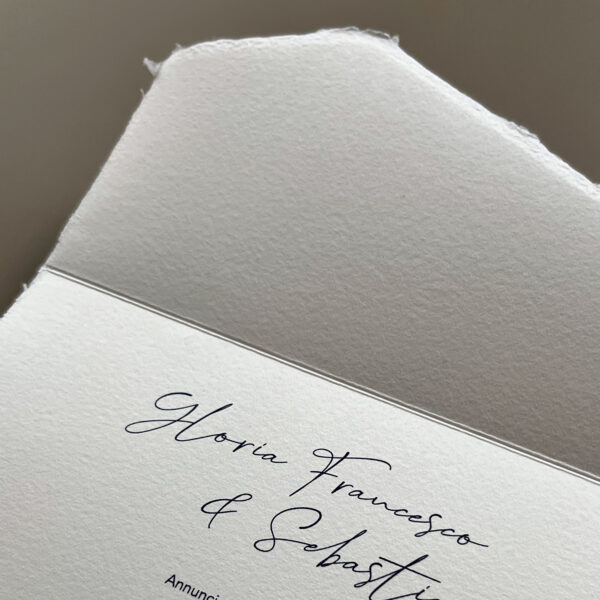 Gloria Francesco
& Sebasti
Annunci